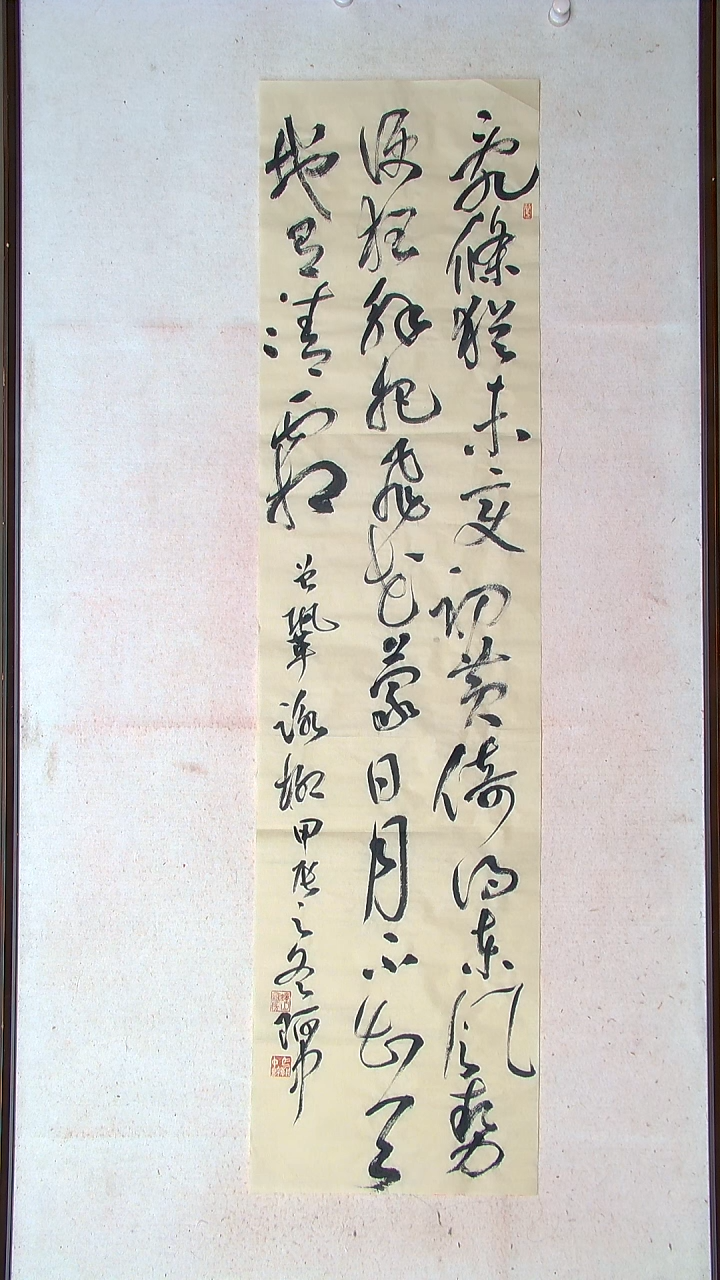 亂條猶未變初黃倚得東風勢
便狂解把飛花蒙日月不知天
地有清霜 曾鞏詠柳甲辰之冬